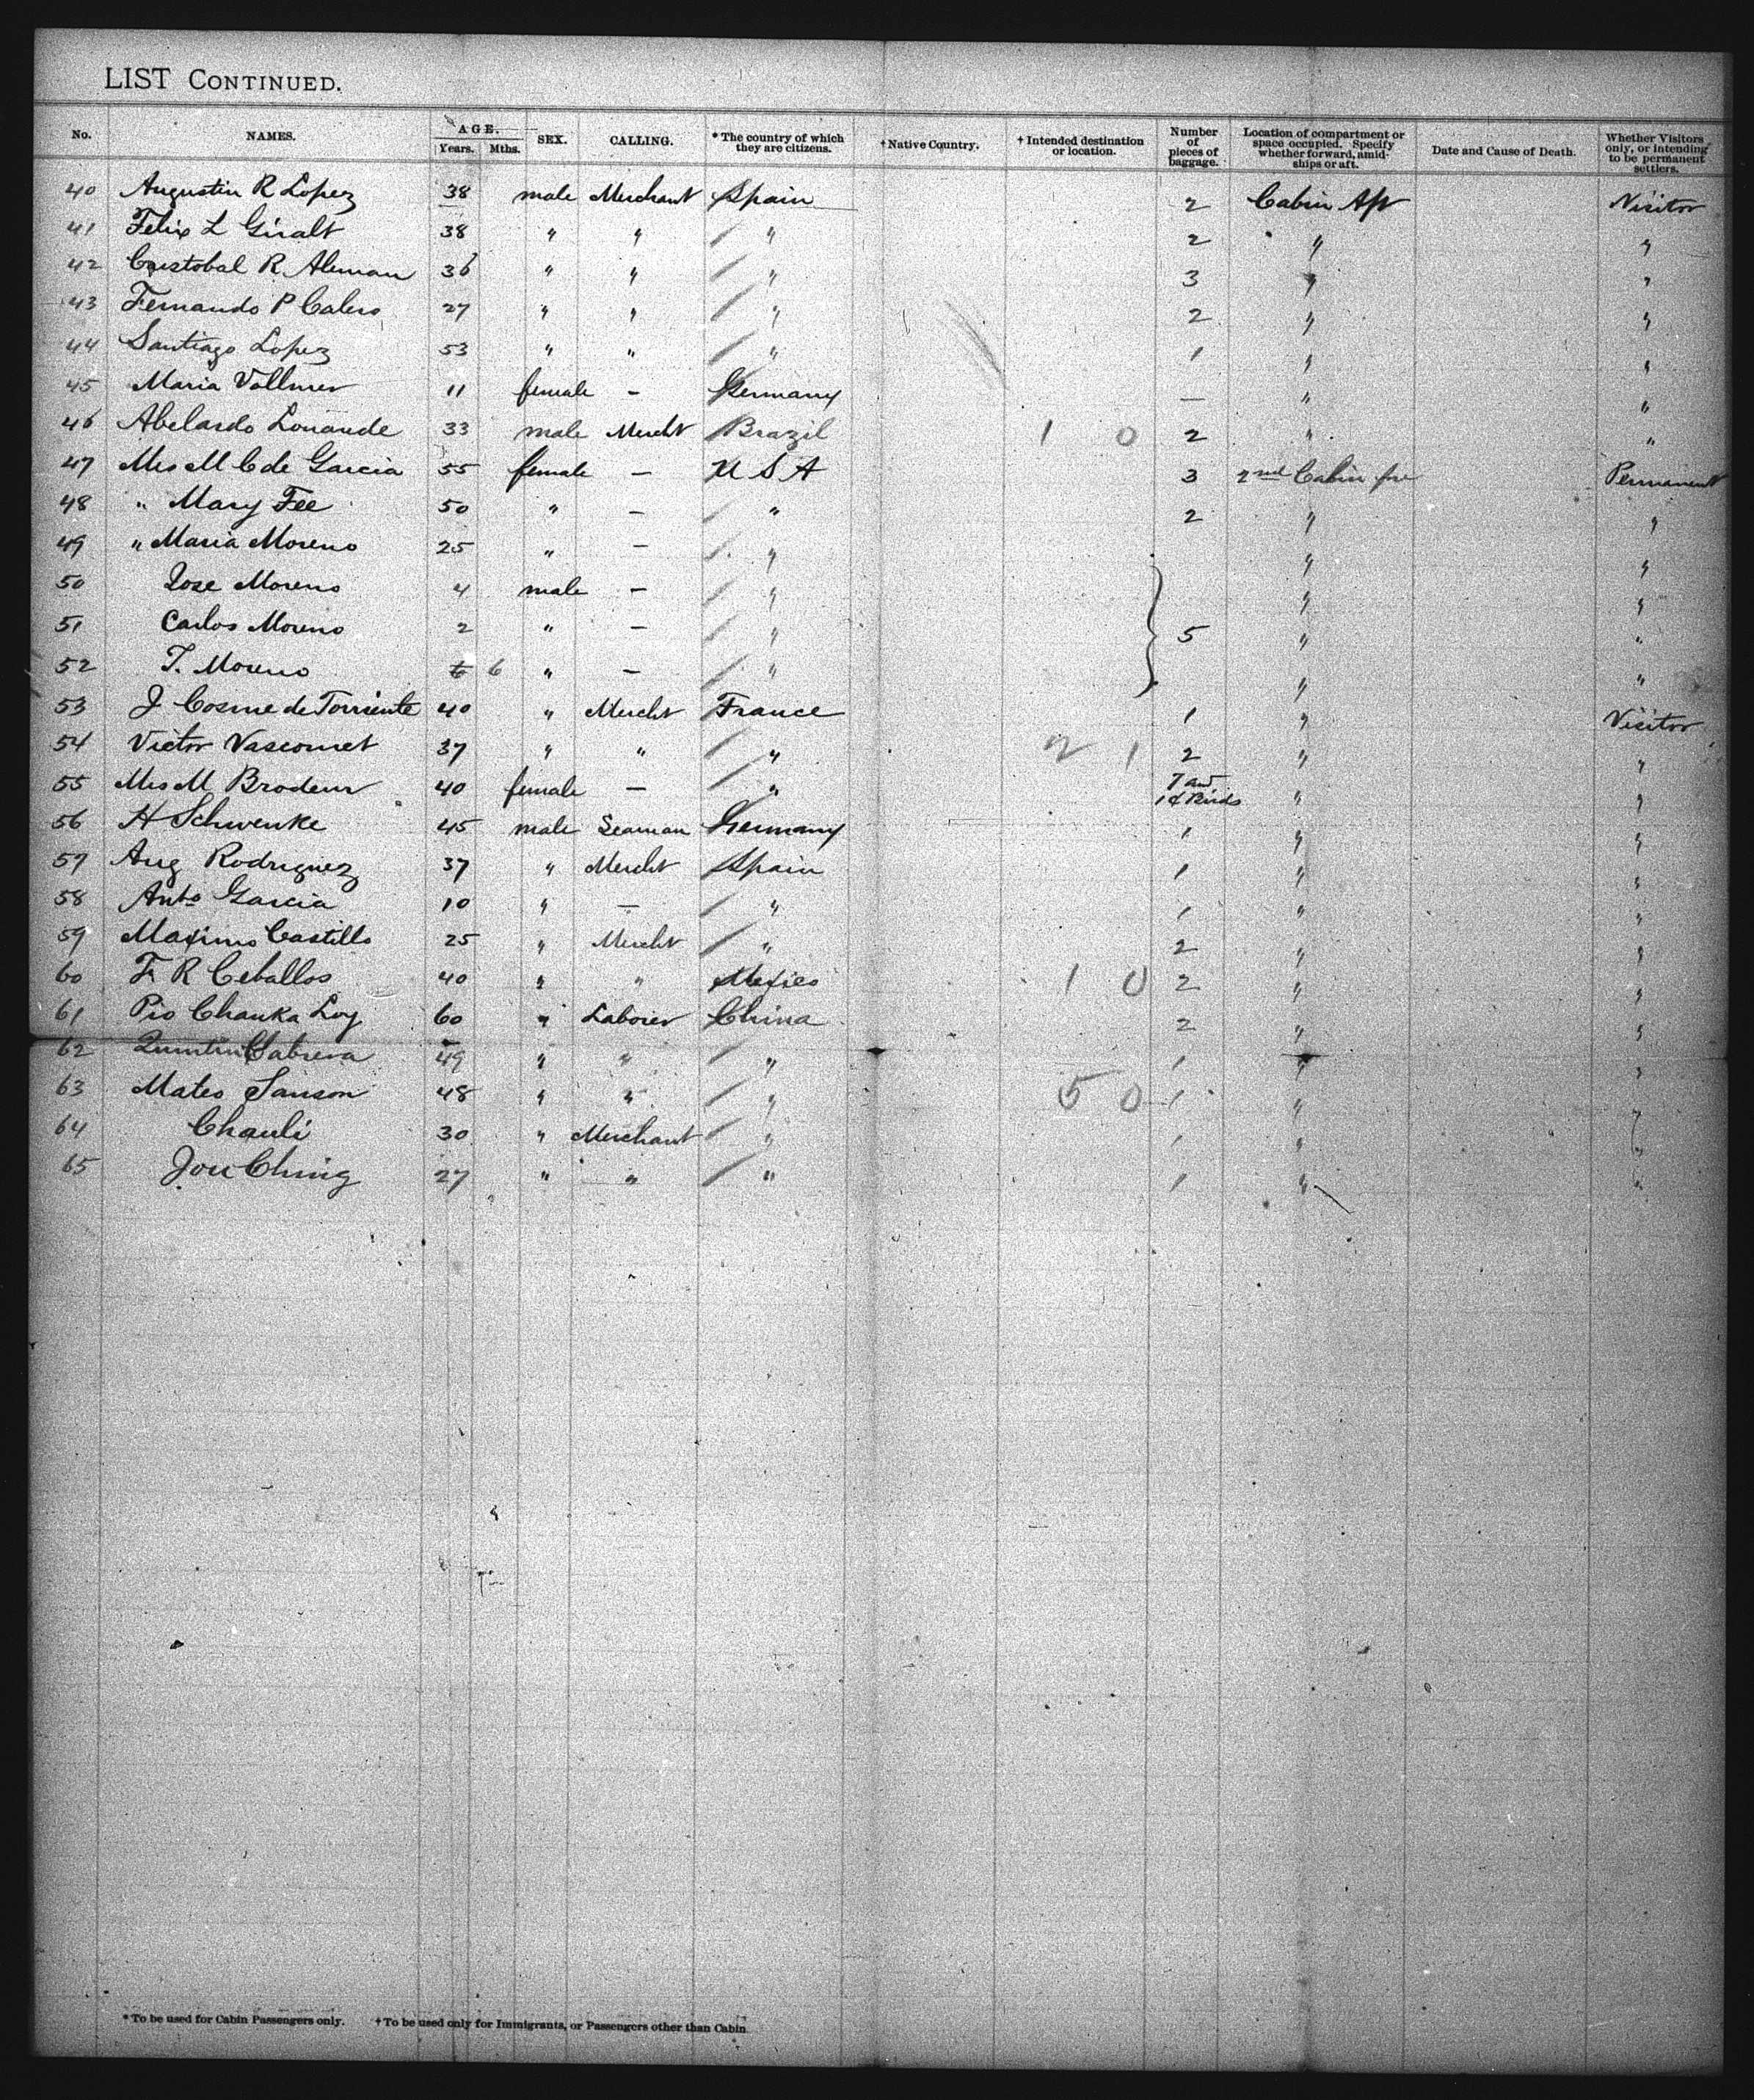 LIST CONTINUED.
No. NAMES. AGE. Years. Mths. SEX. CALLING. * The country of which they are citizens. † Native Country. † Intended destination or location. Number of pieces of baggage. Location of compartment or space occupied. Specify whether forward, amidships or aft. Date and Cause of Death. Whether Visitors only, or intending to be permanent settlers.
40 Augustin R Lopez 38 male Merchant Spain 2 Cabin Aft Visitor
41 Felix L Giralt 38 " " " 2 " "
42 Cristobal R Aleman 36 " " " 3 " "
43 Fernando P Calero 27 " " " 2 " "
44 Santiago Lopez 53 " " " 1 " "
45 Maria Vollmer 11 female - Germany — " "
46 Abelardo 33 male Mercht Brazil 1 0 2 " "
47 Mrs M C de Garcia 55 female - U S A 3 2nd Cabin for Permanent
48 " Mary Fee 50 " - " 2 " "
49 " Maria Moreno 25 " - " " "
50 Jose Moreno 4 male - " " "
51 Carlos Moreno 2 " - " 5 " "
52 T. Moreno 6 6 " - " " "
53 J Cosme de Torriente 40 " Mercht France 1 " Visitor
54 Victor 37 " " " 2 1 2 " "
55 Mrs M Brodeur 40 female - " 7 and 1 of Birds " "
56 H Schwenke 45 male Seaman Germany 1 " "
57 Aug Rodriguez 37 " Mercht Spain 1 " "
58 Anto Garcia 10 " - " 1 " "
59 Maximo Castillo 25 " Mercht " 2 " "
60 F R Ceballos 40 " " Mexico 1 0 2 " "
61 Pio Chauka Loy 60 " Laborer China 2 " "
62 Quintin Cabrera 49 " " " 1 " "
63 Mateo Sanson 48 " " " 5 0 1 " "
64 Chauli 30 " Merchant " 1 " "
65 Jou Ching 27 " " " 1 " "
* To be used for Cabin Passengers only. † To be used only for Immigrants, or Passengers other than Cabin